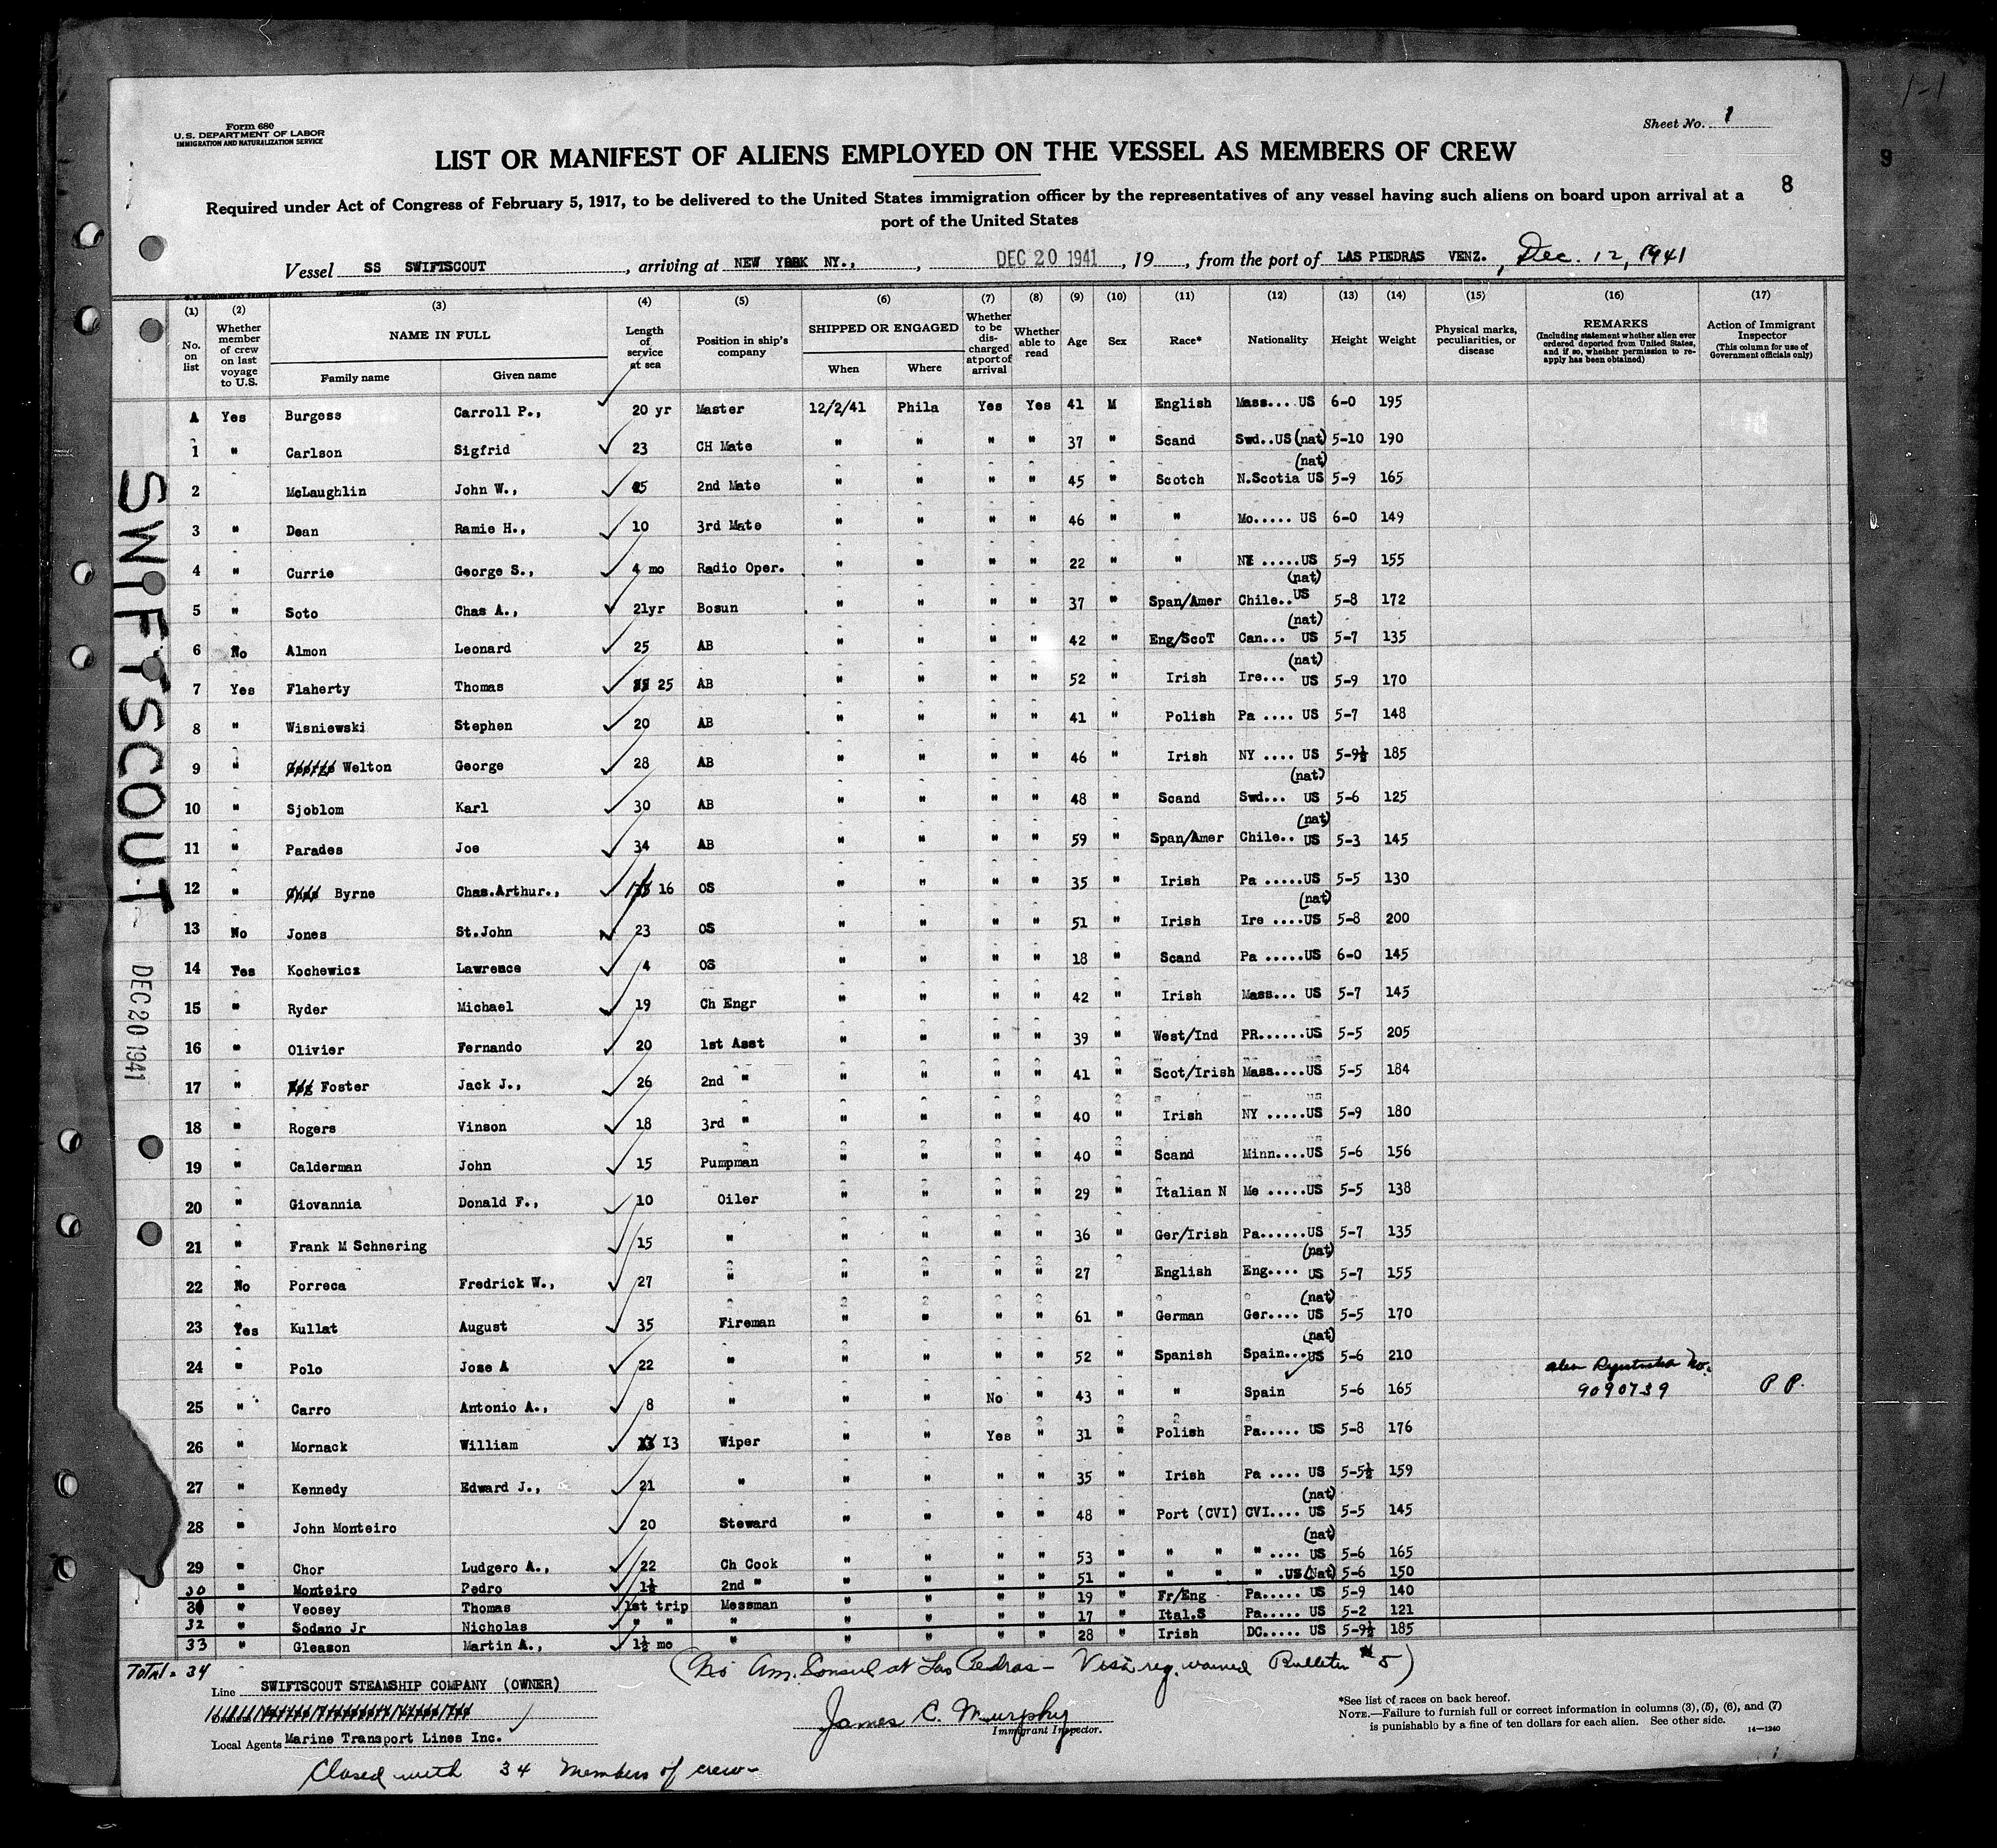 1-1
Form 680
U.S. DEPARTMENT OF LABOR
IMMIGRATION AND NATURALIZATION SERVICE
Sheet No. 1
9
LIST OR MANIFEST OF ALIENS EMPLOYED ON THE VESSEL AS MEMBERS OF CREW
8
Required under Act of Congress of February 5, 1917, to be delivered to the United States immigration officer by the representatives of any vessel having such aliens on board upon arrival at a
port of the United States
Vessel SS SWIFTSCOUT, arriving at NEW YORK NY., , DEC 20 1941, 19 , from the port of LAS PIEDRAS VENZ., Dec. 12, 1941
(1) No. on list (2) Whether member of crew on last voyage to U.S. (3) NAME IN FULL Family name Given name (4) Length of service at sea (5) Position in ship's company (6) SHIPPED OR ENGAGED When Where (7) Whether to be discharged at port of arrival (8) Whether able to read (9) Age (10) Sex (11) Race* (12) Nationality (13) Height (14) Weight (15) Physical marks, peculiarities, or disease (16) REMARKS (Including statement whether alien ever ordered deported from United States, and if so, whether permission to reapply has been obtained) (17) Action of Immigrant Inspector (This column for use of Government officials only)
A Yes Burgess Carroll P., 20 yr Master 12/2/41 Phila Yes Yes 41 M English Mass.... US 6-0 195
1 " Carlson Sigfrid 23 CH Mate " " " " 37 " Scand Swd..US (nat) 5-10 190
2 McLaughlin John W., 2nd Mate " " " " 45 " Scotch N.Scotia US (nat) 5-9 165
3 " Dean Ramie H., 10 3rd Mate " " " " 46 " " Mo..... US 6-0 149
4 " Currie George S., 4 mo Radio Oper. " " " " 22 " " .....US 5-9 155
5 " Soto Chas A., 21yr Bosun " " " " 37 " Span/Amer Chile..US (nat) 5-8 172
6 No Almon Leonard 25 AB " " " " 42 " Eng/ScoT Can... US (nat) 5-7 135
7 Yes Flaherty Thomas 25 AB " " " " 52 " Irish Ire... US (nat) 5-9 170
8 " Wisniewski Stephen 20 AB " " " " 41 " Polish Pa .... US 5-7 148
9 " Welton George 28 AB " " " " 46 " Irish NY .... US 5-9½ 185
10 " Sjoblom Karl 30 AB " " " " 48 " Scand Swd... US (nat) 5-6 125
11 " Parades Joe 34 AB " " " " 59 " Span/Amer Chile.. US (nat) 5-3 145
12 " Byrne Chas.Arthur., 16 OS " " " " 35 " Irish Pa .....US 5-5 130
13 No Jones St.John 23 OS " " " " 51 " Irish Ire ....US (nat) 5-8 200
14 Yes Kochewicz Lawrence 4 OS " " " " 18 " Scand Pa .....US 6-0 145
15 " Ryder Michael 19 Ch Engr " " " " 42 " Irish Mass... US 5-7 145
16 " Olivier Fernando 20 1st Asst " " " " 39 " West/Ind PR......US 5-5 205
17 " Foster Jack J., 26 2nd " " " " " 41 " Scot/Irish Mass....US 5-5 184
18 " Rogers Vinson 18 3rd " " " " " 40 " Irish NY .....US 5-9 180
19 " Calderman John 15 Pumpman " " " " 40 " Scand Minn....US 5-6 156
20 " Giovannia Donald F., 10 Oiler " " " " 29 " Italian N Me .....US 5-5 138
21 " Frank M Schnering 15 " " " " " 36 " Ger/Irish Pa......US 5-7 135
22 No Porreca Fredrick W., 27 " " " " " 27 English Eng.... US (nat) 5-7 155
23 Yes Kullat August 35 Fireman " " " " 61 " German Ger.... US (nat) 5-5 170
24 " Polo Jose A 22 " " " " " 52 " Spanish Spain...US (nat) 5-6 210
25 " Carro Antonio A., 8 " " " No " 43 " " Spain 5-6 165 9090739 P P.
26 " Mornack William 13 Wiper " " Yes " 31 " Polish Pa..... US 5-8 176
27 " Kennedy Edward J., 21 " " " " " 35 " Irish Pa .... US 5-5½ 159
28 " John Monteiro 20 Steward " " " " 48 " Port (CVI) CVI.... US (nat) 5-5 145
29 " Chor Ludgero A., 22 Ch Cook " " " " 53 " " " " .... US (nat) 5-6 165
30 " Monteiro Pedro 1½ 2nd " " " " " 51 " " " " .US (Nat) 5-6 150
31 " Veosey Thomas 1st trip Messman " " " " 19 " Fr/Eng Pa..... US 5-9 140
32 " Sodano Jr Nicholas " " " " " " " 17 " Ital.S Pa..... US 5-2 121
33 " Gleason Martin A., 1½ mo " " " " " 28 " Irish DC..... US 5-9½ 185
Total = 34
(No Am. Consul at Las Piedras - Visa req. waived Bulletin #5)
Line SWIFTSCOUT STEAMSHIP COMPANY (OWNER)
Owners
Local Agents Marine Transport Lines Inc.
James C. Murphy
Immigrant Inspector.
*See list of races on back hereof.
NOTE.—Failure to furnish full or correct information in columns (3), (5), (6), and (7)
is punishable by a fine of ten dollars for each alien. See other side. 14—1240
Closed with 34 members of crew-
SWIFTSCOUT
DEC 20 1941